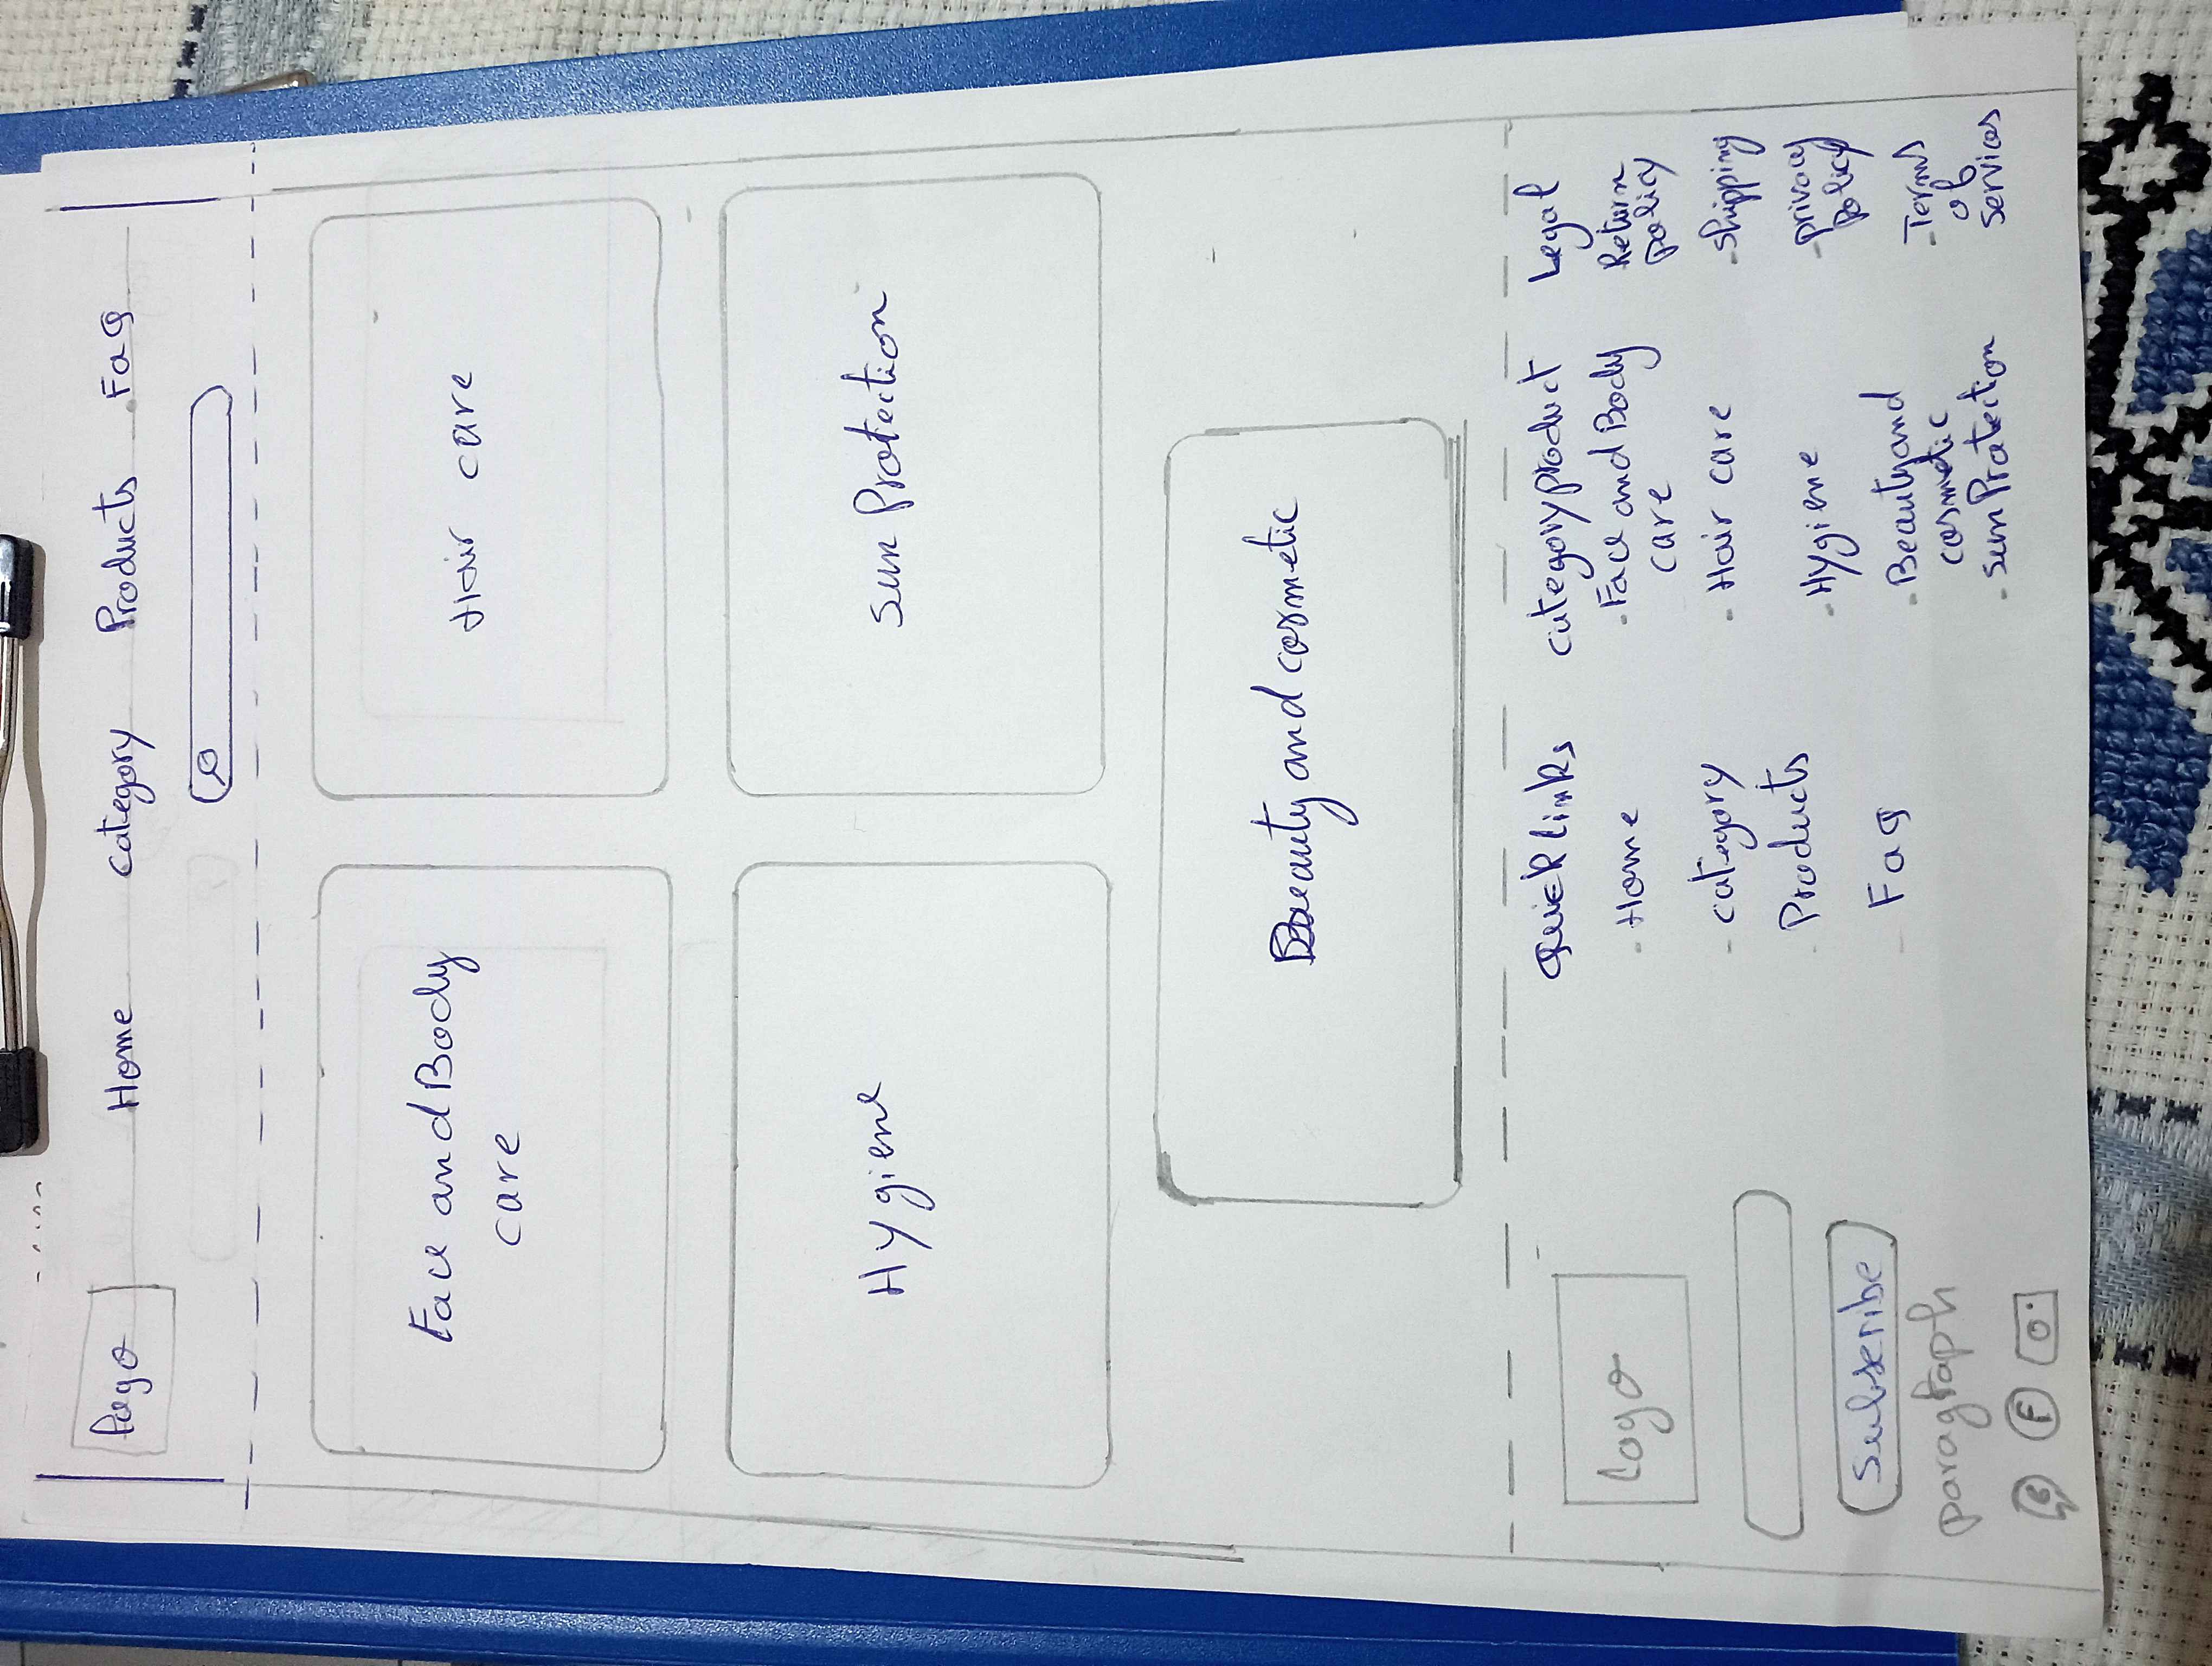 logo
Home
category
Products
FaQ
Face and Body
care
Hair care
Hygiene
Sun Protection
Beauty and cosmetic
Logo
Subscribe
paragraph
F
Quick links
- Home
- category
- Products
- FaQ
category product
- Face and Body
care
- Hair care
- Hygiene
- Beauty and
cosmetic
- Sun Protection
Legal
Return
policy
- shipping
- privacy
policy
- Terms
of
services